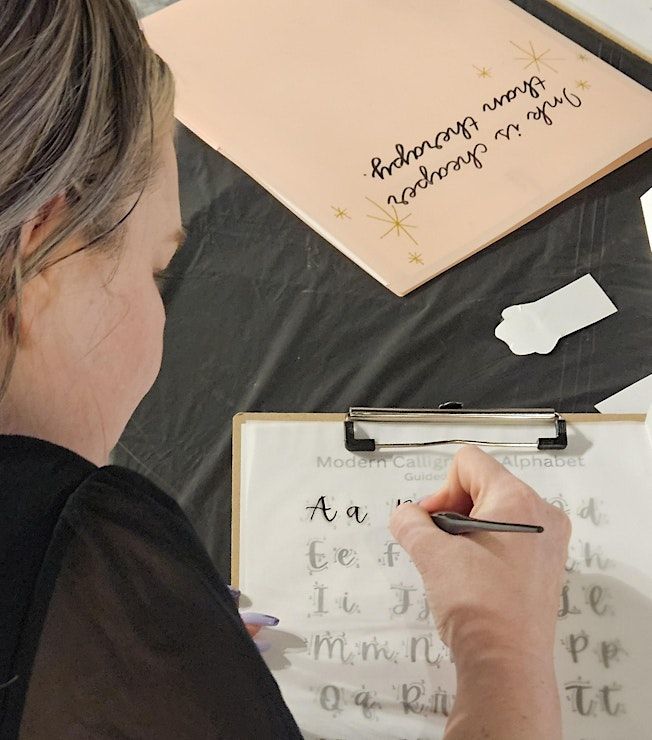 Ink is cheaper
than therapy.
Modern Alphabet
Guided
A a d
E e F
I i J L l
M m N P p
Q q R T t